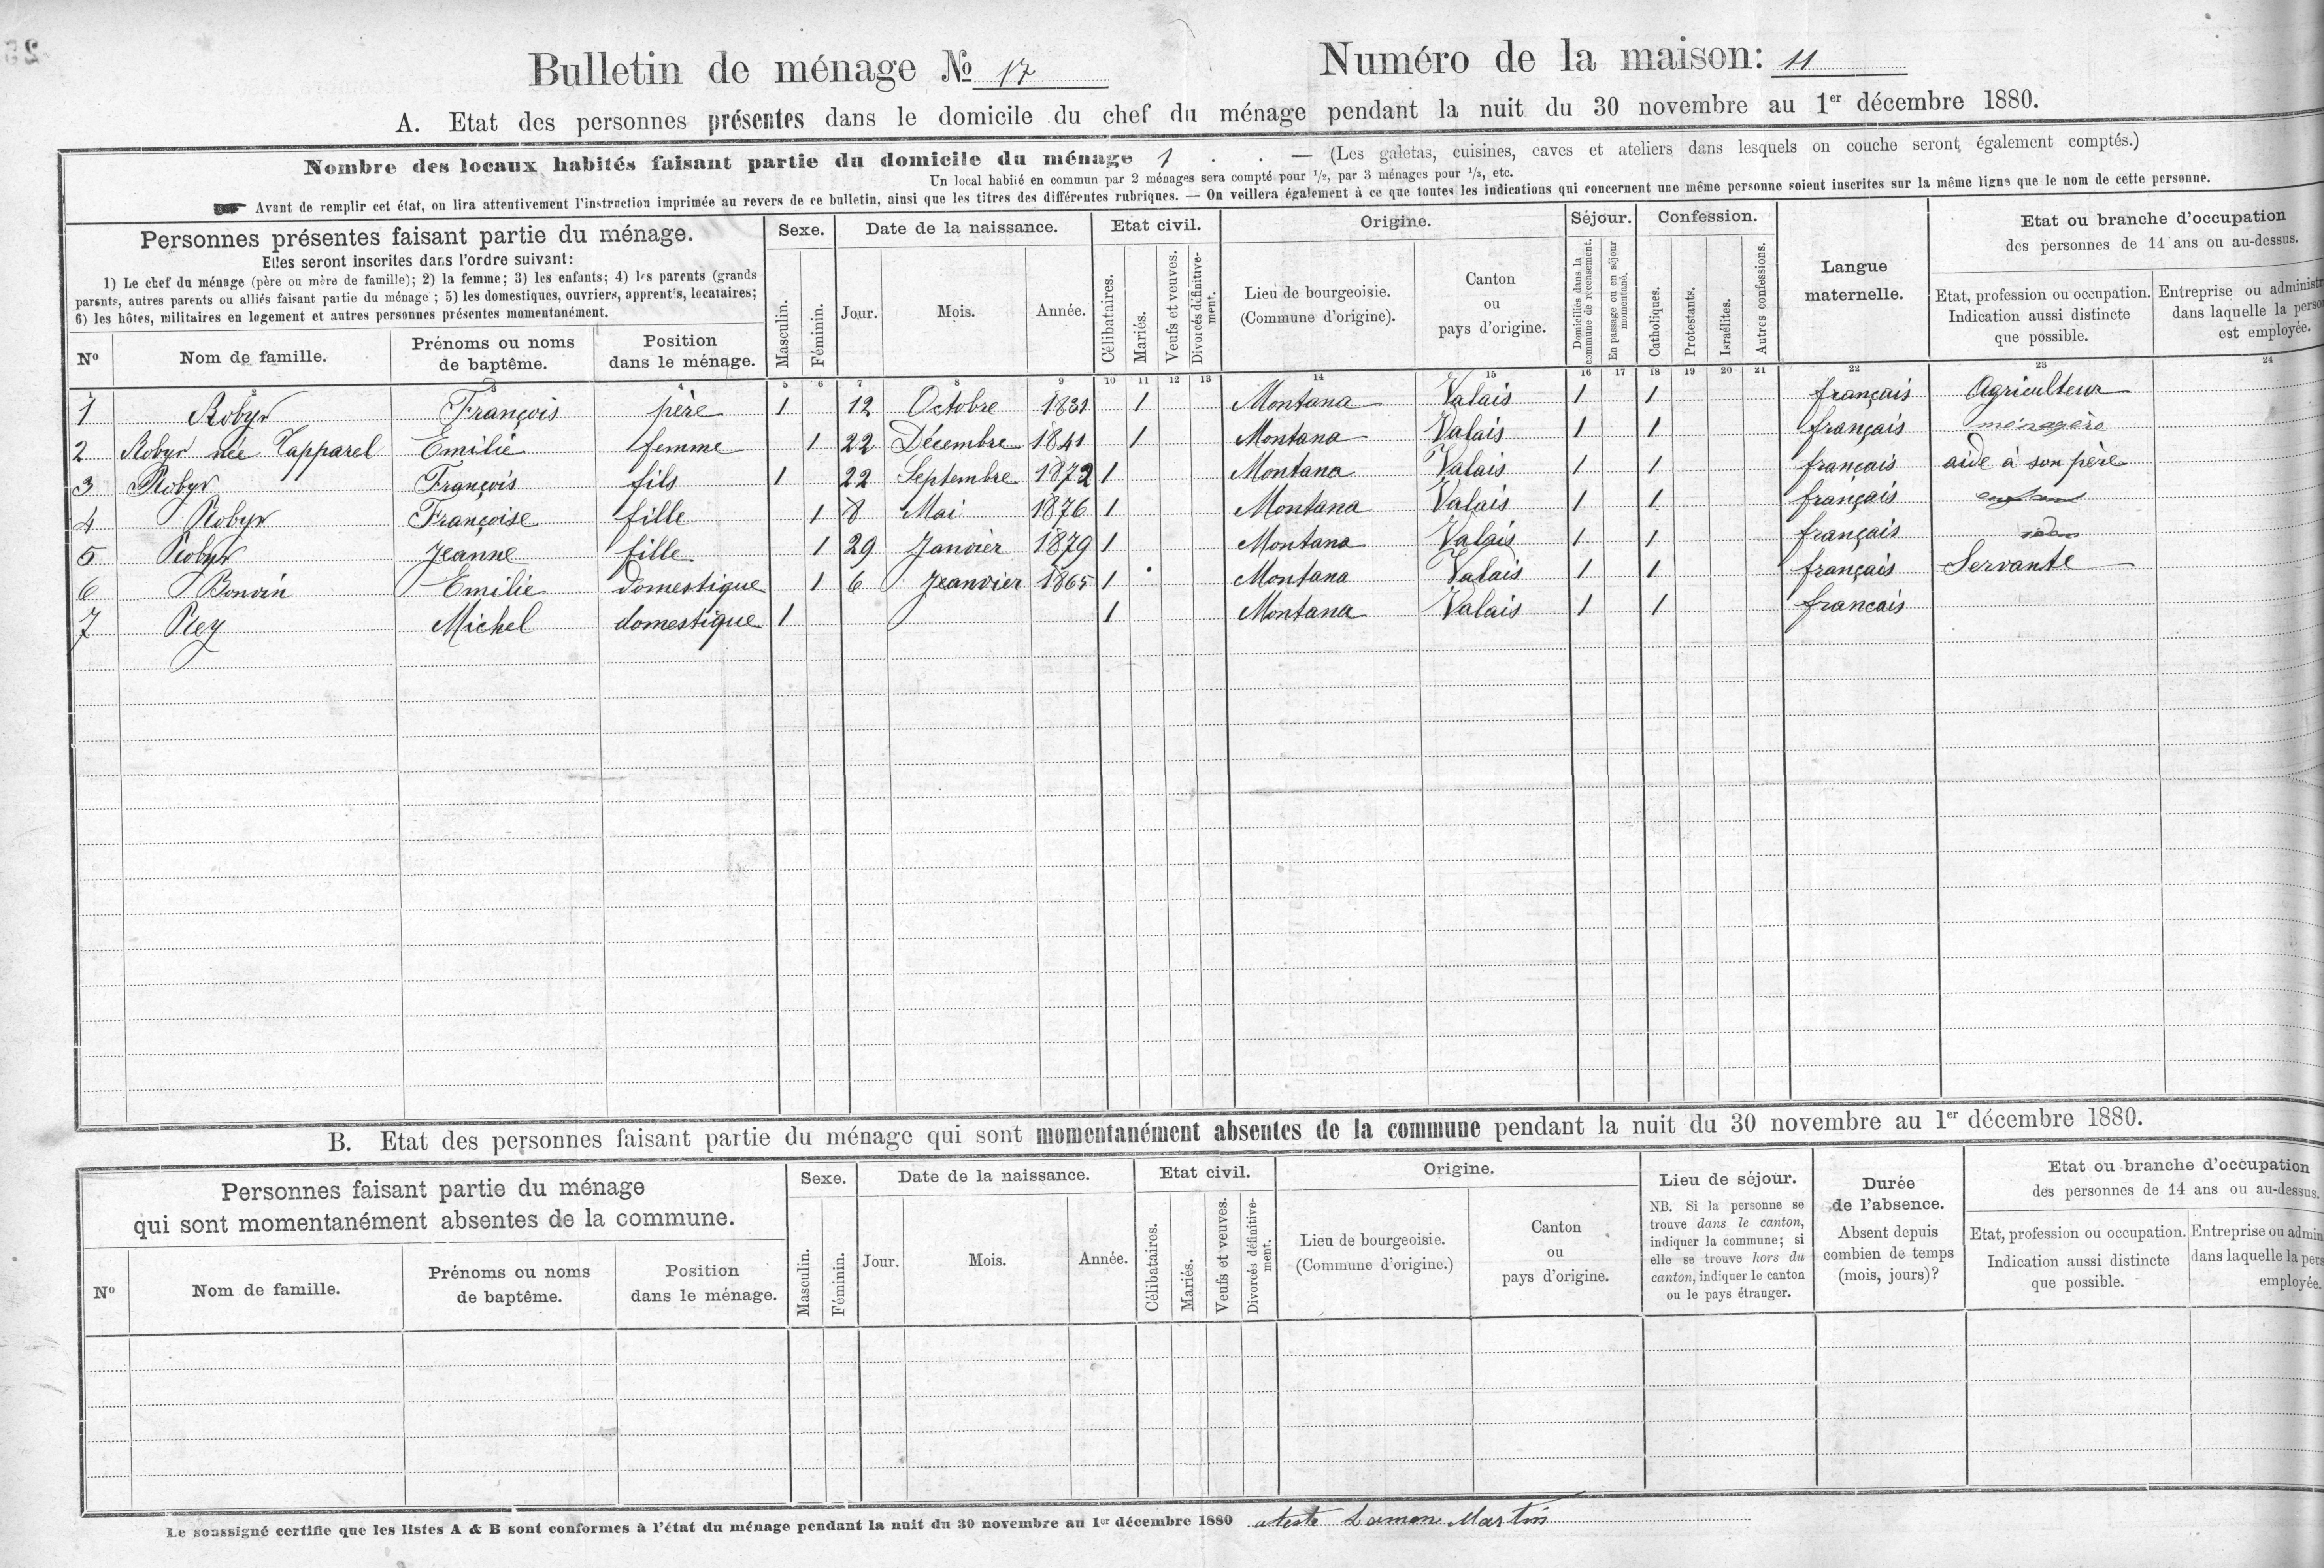 Bulletin de ménage № 17
Numéro de la maison: 11
A. Etat des personnes présentes dans le domicile du chef du ménage pendant la nuit du 30 novembre au 1er décembre 1880.
Nombre des locaux habités faisant partie du domicile du ménage 1 . . — (Les galetas, cuisines, caves et ateliers dans lesquels on couche seront également comptés.)
Un local habité en commun par 2 ménages sera compté pour 1/2, par 3 ménages pour 1/3, etc.
Avant de remplir cet état, on lira attentivement l'instruction imprimée au revers de ce bulletin, ainsi que les titres des différentes rubriques. — On veillera également à ce que toutes les indications qui concernent une même personne soient inscrites sur la même ligne que le nom de cette personne.
Personnes présentes faisant partie du ménage.
Elles seront inscrites dans l'ordre suivant:
1) Le chef du ménage (père ou mère de famille); 2) la femme; 3) les enfants; 4) les parents (grands
parents, autres parents ou alliés faisant partie du ménage; 5) les domestiques, ouvriers, apprentis, locataires;
6) les hôtes, militaires en logement et autres personnes présentes momentanément.
No
Nom de famille.
Prénoms ou noms
de baptême.
Position
dans le ménage.
Sexe.
Masculin.
Féminin.
Date de la naissance.
Jour.
Mois.
Année.
Etat civil.
Célibataires.
Mariés.
Veufs et veuves.
Divorcés définitive-
ment.
Origine.
Lieu de bourgeoisie.
(Commune d'origine).
Canton
ou
pays d'origine.
Séjour.
Domiciliés dans la
commune de recensement.
En passage ou en séjour
momentané.
Confession.
Catholiques.
Protestants.
Israélites.
Autres confessions.
Langue
maternelle.
Etat ou branche d'occupation
des personnes de 14 ans ou au-dessus.
Etat, profession ou occupation.
Indication aussi distincte
que possible.
Entreprise ou administr
dans laquelle la perso
est employée.
2 3 4 5 6 7 8 9 10 11 12 13 14 15 16 17 18 19 20 21 22 23 24
1 Robyr François père 1 12 Octobre 1831 1 Montana Valais 1 1 français Agriculteur
2 Robyr née Tapparel Emilie femme 1 22 Décembre 1841 1 Montana Valais 1 1 français ménagère
3 Robyr François fils 1 22 Septembre 1872 1 Montana Valais 1 1 français aide à son père
4 Robyr Françoise fille 1 8 Mai 1876 1 Montana Valais 1 1 français
5 Robyr Jeanne fille 1 29 Janvier 1879 1 Montana Valais 1 1 français
6 Bonvin Emilie domestique 1 6 Jeanvier 1865 1 Montana Valais 1 1 français Servante
7 Rey Michel domestique 1 1 Montana Valais 1 1 francais
B. Etat des personnes faisant partie du ménage qui sont momentanément absentes de la commune pendant la nuit du 30 novembre au 1er décembre 1880.
Personnes faisant partie du ménage
qui sont momentanément absentes de la commune.
No
Nom de famille.
Prénoms ou noms
de baptême.
Position
dans le ménage.
Sexe.
Masculin.
Féminin.
Date de la naissance.
Jour.
Mois.
Année.
Etat civil.
Célibataires.
Mariés.
Veufs et veuves.
Divorcés définitive-
ment.
Origine.
Lieu de bourgeoisie.
(Commune d'origine.)
Canton
ou
pays d'origine.
Lieu de séjour.
NB. Si la personne se
trouve dans le canton,
indiquer la commune; si
elle se trouve hors du
canton, indiquer le canton
ou le pays étranger.
Durée
de l'absence.
Absent depuis
combien de temps
(mois, jours)?
Etat ou branche d'occupation
des personnes de 14 ans ou au-dessus.
Etat, profession ou occupation.
Indication aussi distincte
que possible.
Entreprise ou admin
dans laquelle la pers
employée.
Le soussigné certifie que les listes A & B sont conformes à l'état du ménage pendant la nuit du 30 novembre au 1er décembre 1880 atteste Lamon Martin